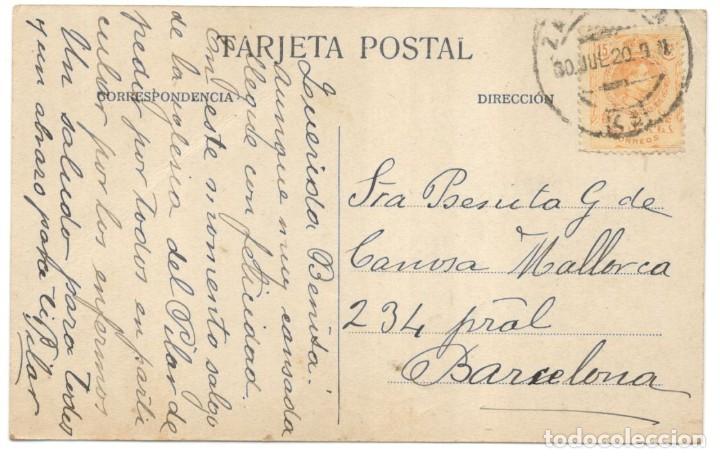 TARJETA POSTAL
CORRESPONDENCIA
DIRECCIÓN
30.JUL.20
15
CORREOS
Querida Benita:
Aunque muy cansada
llegué con felicidad.
En este momento salgo
de la iglesia del Pilar de
pedir por todos en parti
cular por los enfermos
Un saludo para todos
y un abrazo para ti Pilar
Sra Benita G de
Canosa Mallorca
234 pràl
Barcelona
todocoleccion.net